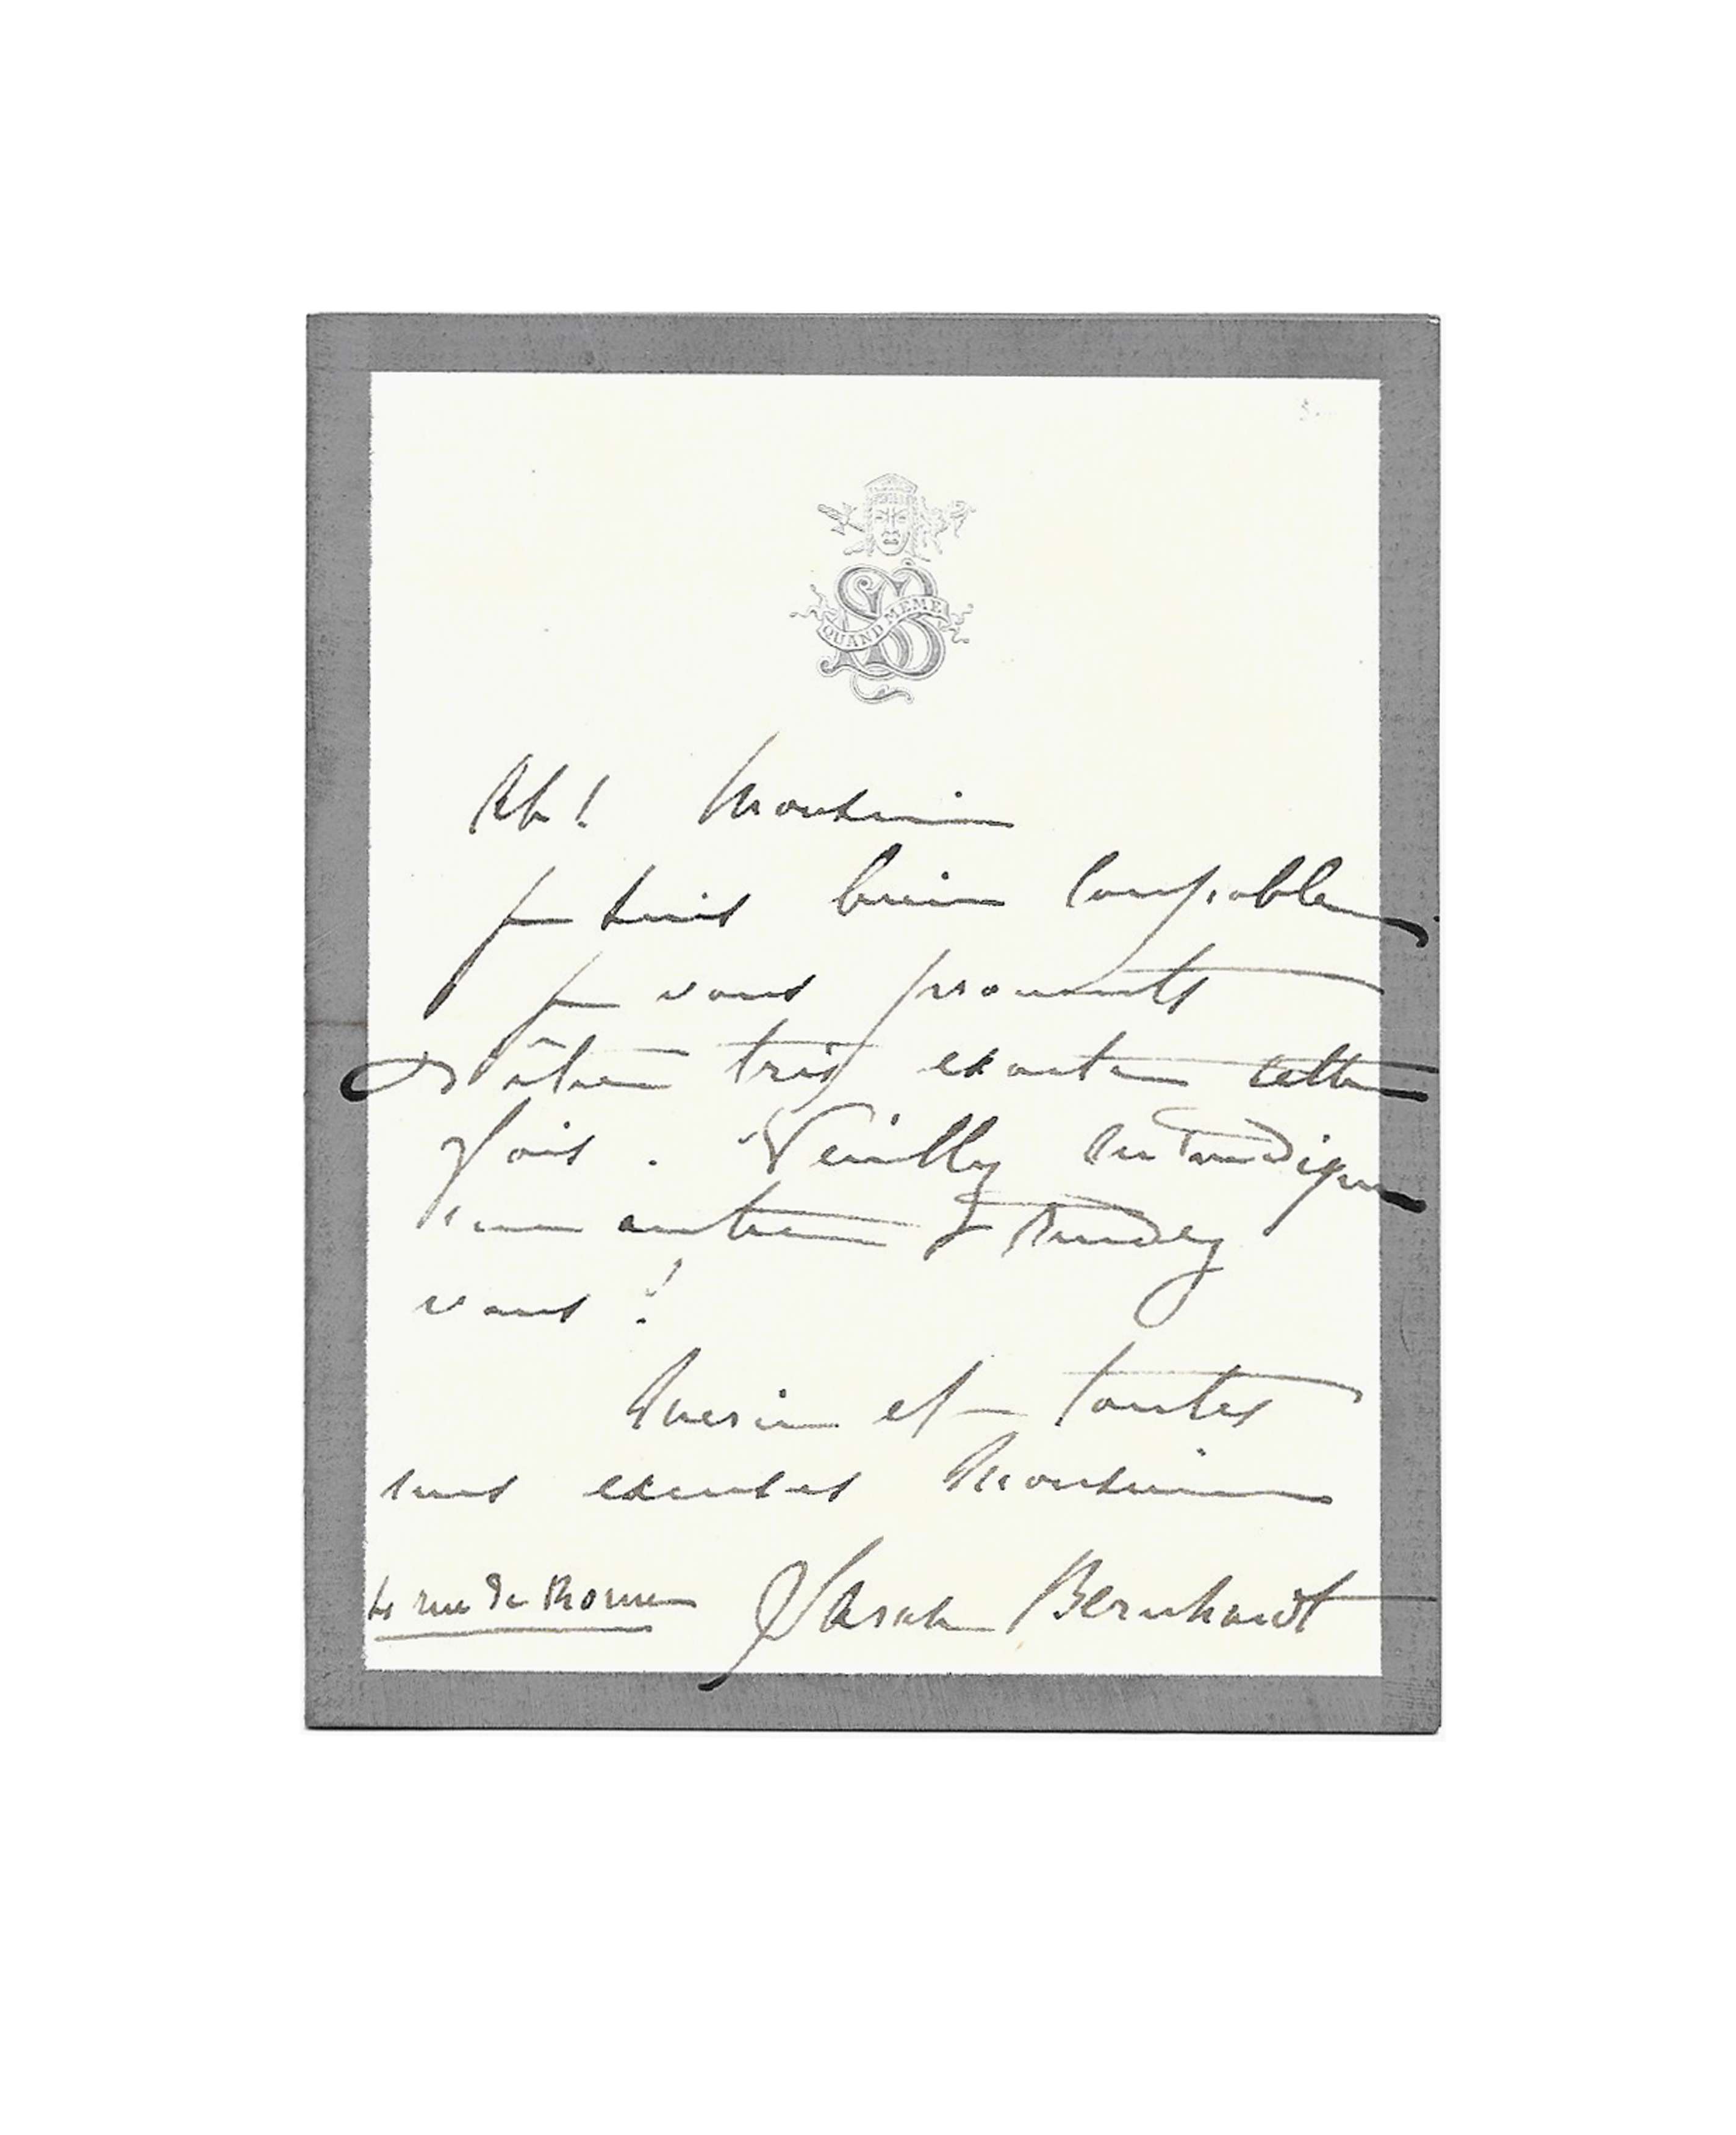 QUAND MEME
Ah! Monsieur
je suis bien coupable
je vous promets
d'être très exacte cette
fois. Veuillez m'indiquer
un autre rendez
vous!
Merci et toutes
mes excuses Monsieur
4 rue de Rome Sarah Bernhardt